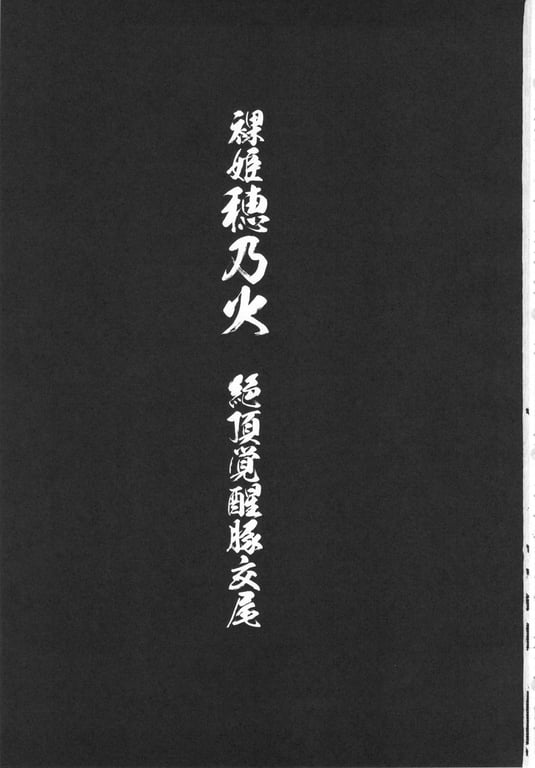 裸姫穂乃火 絶頂覚醒豚交尾